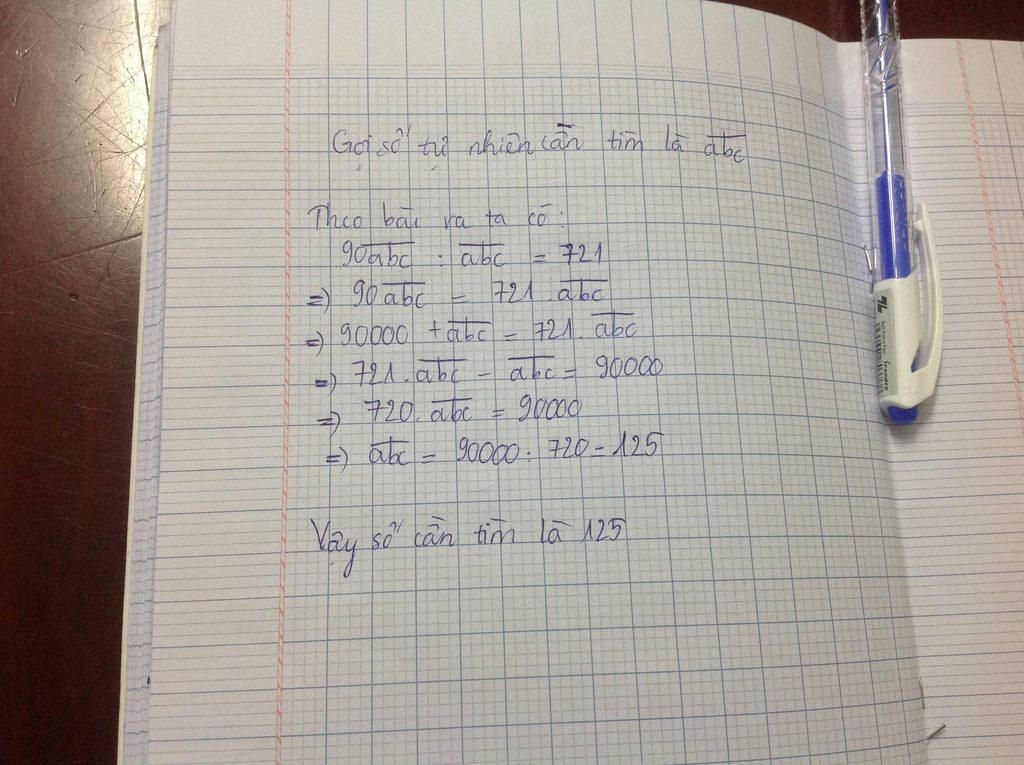 Gọi số tự nhiên cần tìm là a̅b̅c̅
Theo bài ra ta có:
90a̅b̅c̅ : a̅b̅c̅ = 721
=) 90a̅b̅c̅ = 721.a̅b̅c̅
=) 90000 + a̅b̅c̅ = 721.a̅b̅c̅
=) 721.a̅b̅c̅ - a̅b̅c̅ = 90000
=) 720.a̅b̅c̅ = 90000
=) a̅b̅c̅ = 90000 : 720 = 125
Vậy số cần tìm là 125